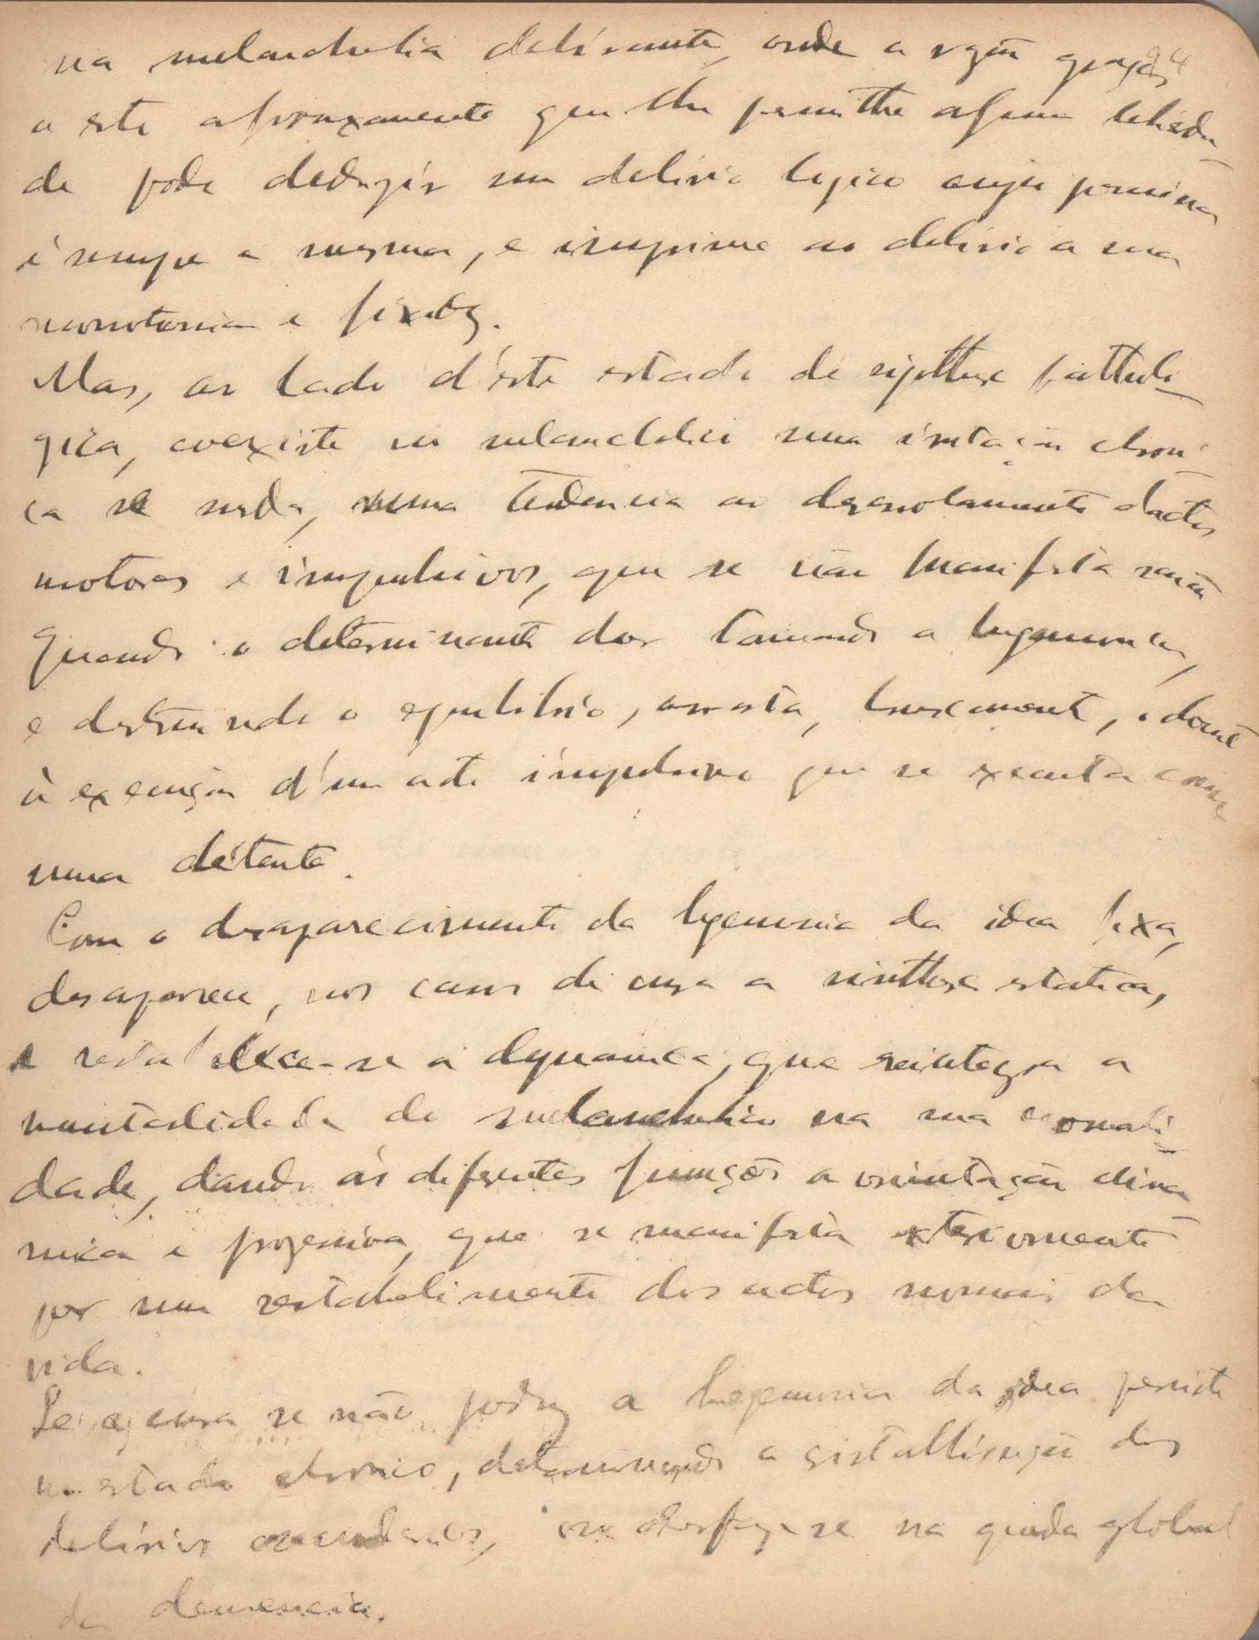 na melancholia delirante, onde a rasão graças 94
a este afrouxamento que lhe permitte alguma
de pode deduzir um delirio logico cuja
é sempre a mesma, e imprime ao delirio a sua
monotonia e fixidez.
Mas, ao lado d'este estado de synthese patholo-
gica, coexiste no melancholico uma irritação chroni
ca se surda, uma tendencia ao desenrolamento d'actos
motores e impulsivos, que se não manifesta senão
quando o determinante dor tomando a hegemonia,
e destruindo o equilibrio, arrasta, bruscamente, o doente
à execução d'um acto impulsivo que se executa como
uma détente.
Com o desaparecimento da hegemonia da idea fixa,
desaparece, nos casos de cura a synthese estatica,
e restabelece-se a dynamica, que reintegra a
mentalidade do melancholico na sua normali-
dade, dando ás diferentes funções a orientação dina
mica e progressiva, que se manifesta exteriormente
por um restabelimento dos actos normais da
vida.
Se a cura se não produz a hegemonia da idea persiste
no estado chronico, determinando a cristallisação dos
delirios secundarios, ou desfaz-se na queda global
da demencia.